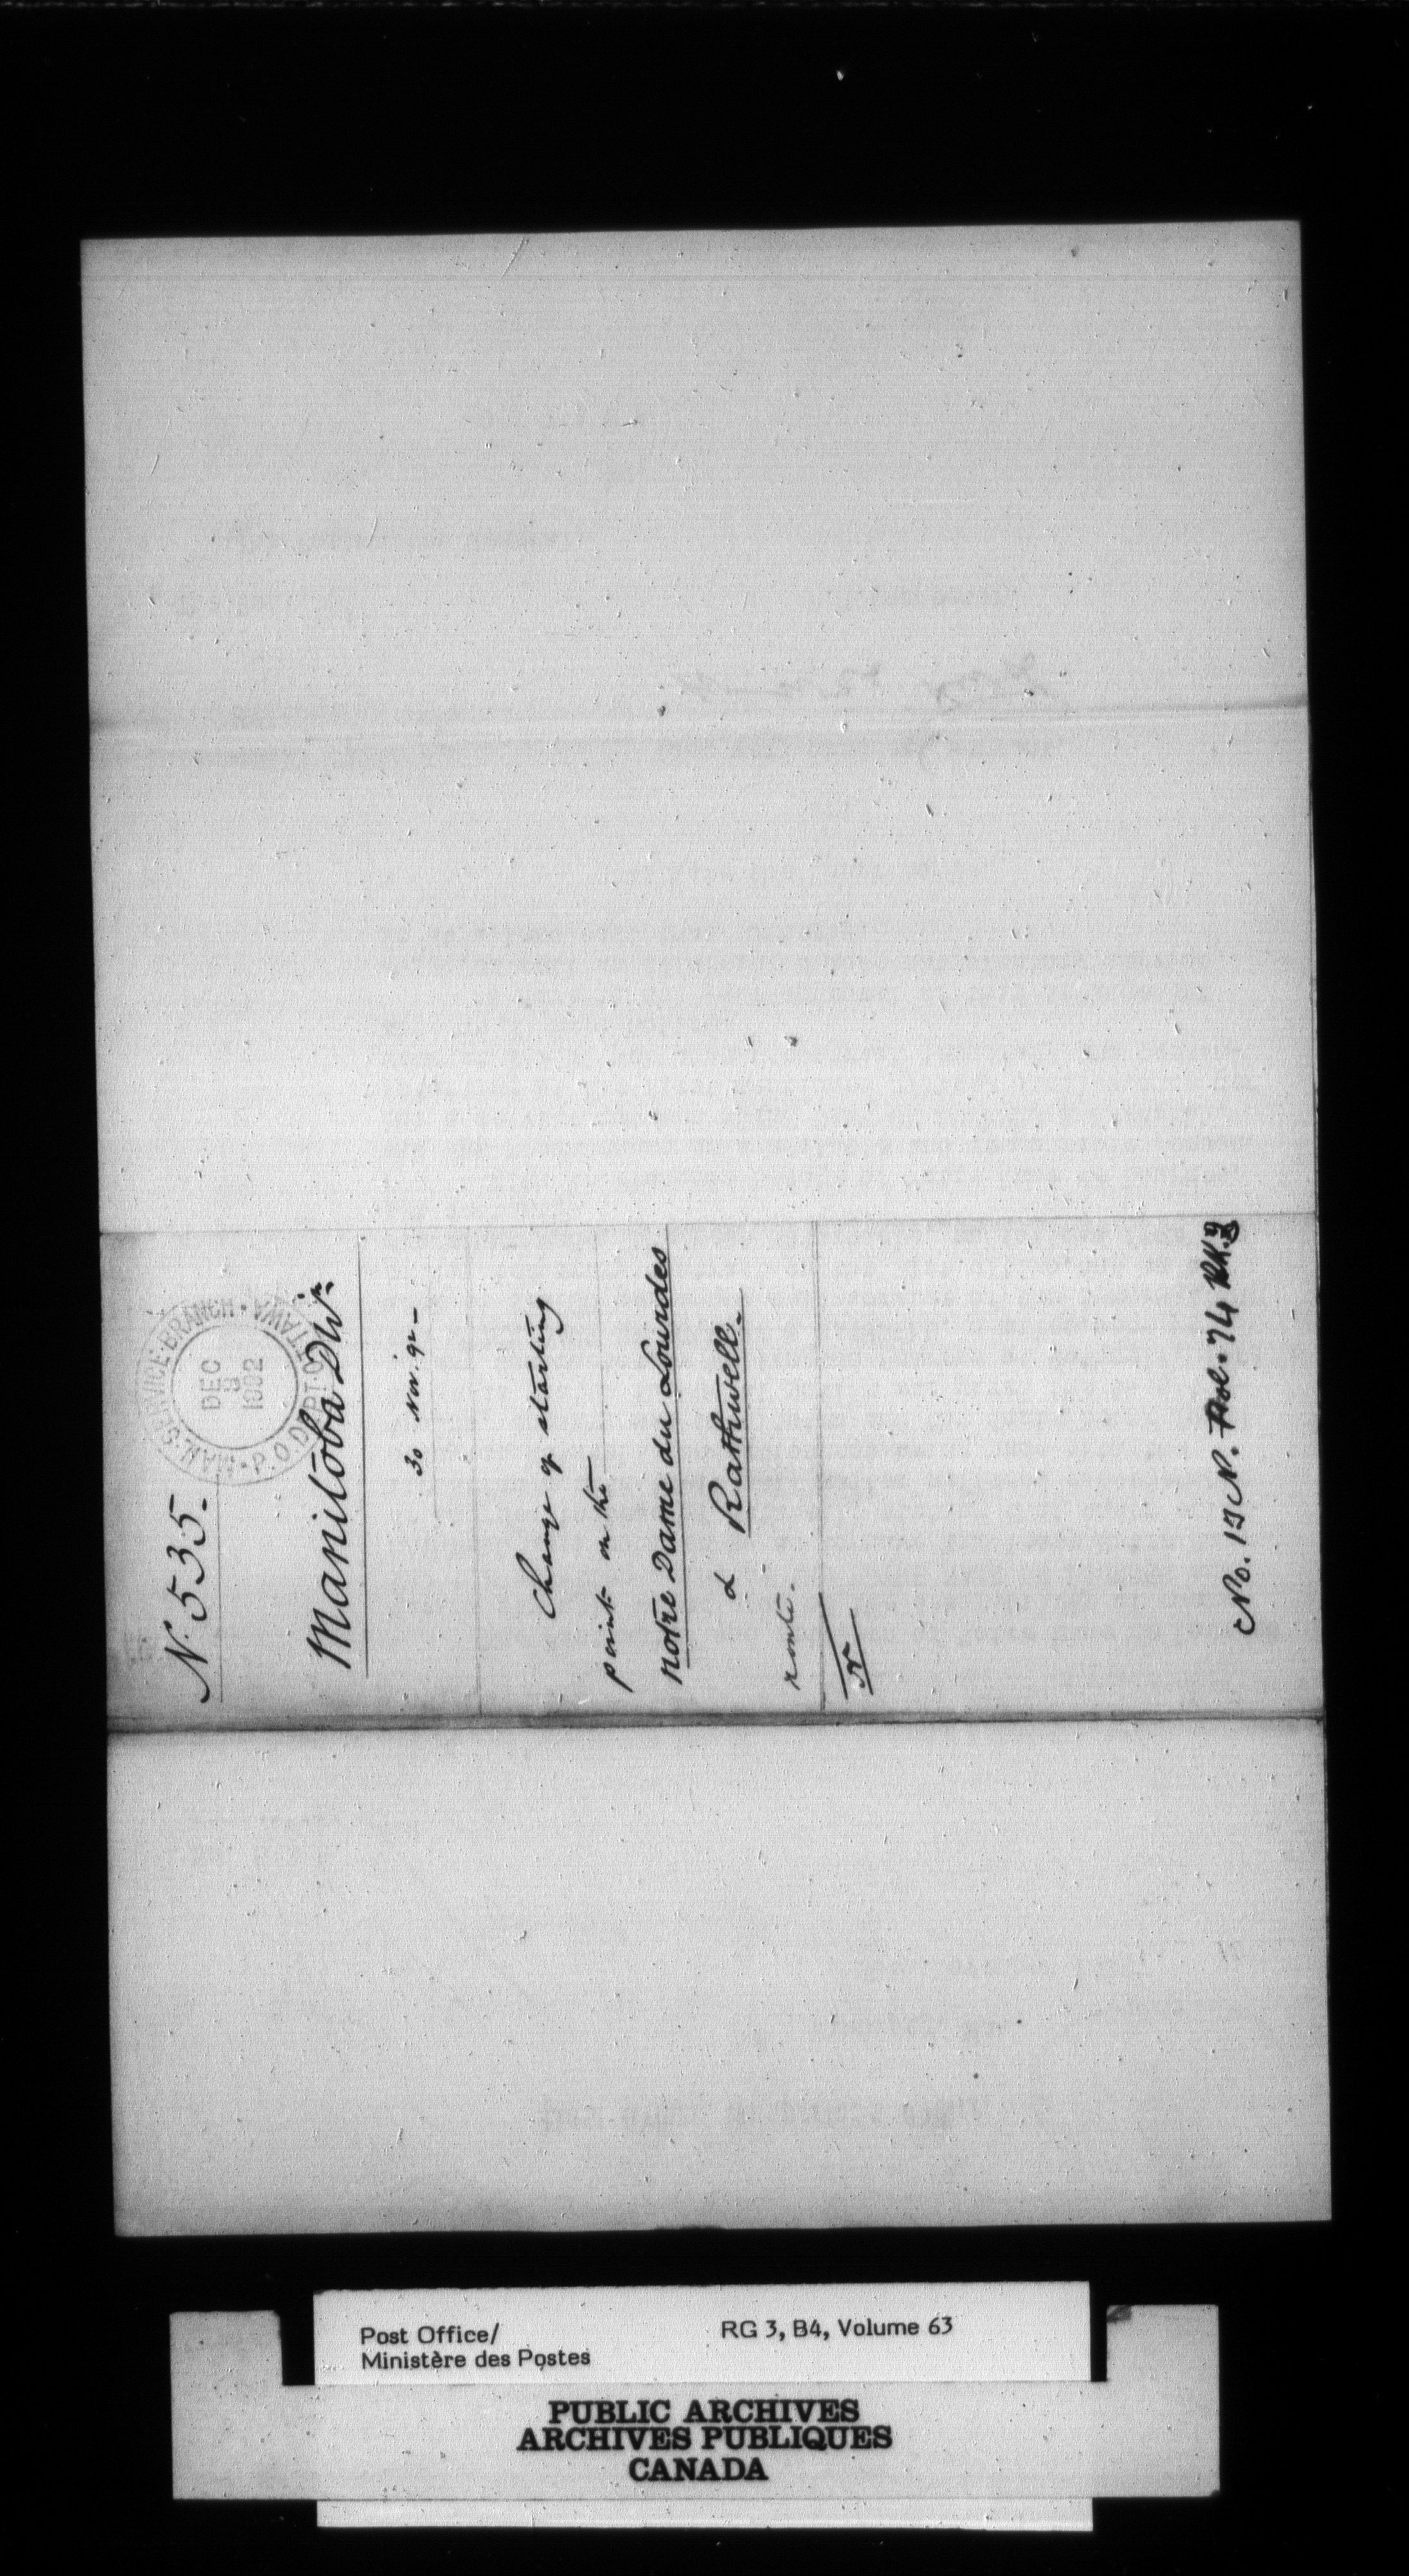 N. 535.
MAIL SERVICE BRANCH • P.O. DEP'T. OTTAWA •
DEC
9
1892
Manitoba Div.
30 Nov. 92 -
Change of starting
point on the
Notre Dame du Lourdes
& Rathwell.
route.
N
No. 19 N. 74
Post Office/
Ministère des Postes
RG 3, B4, Volume 63
PUBLIC ARCHIVES
ARCHIVES PUBLIQUES
CANADA